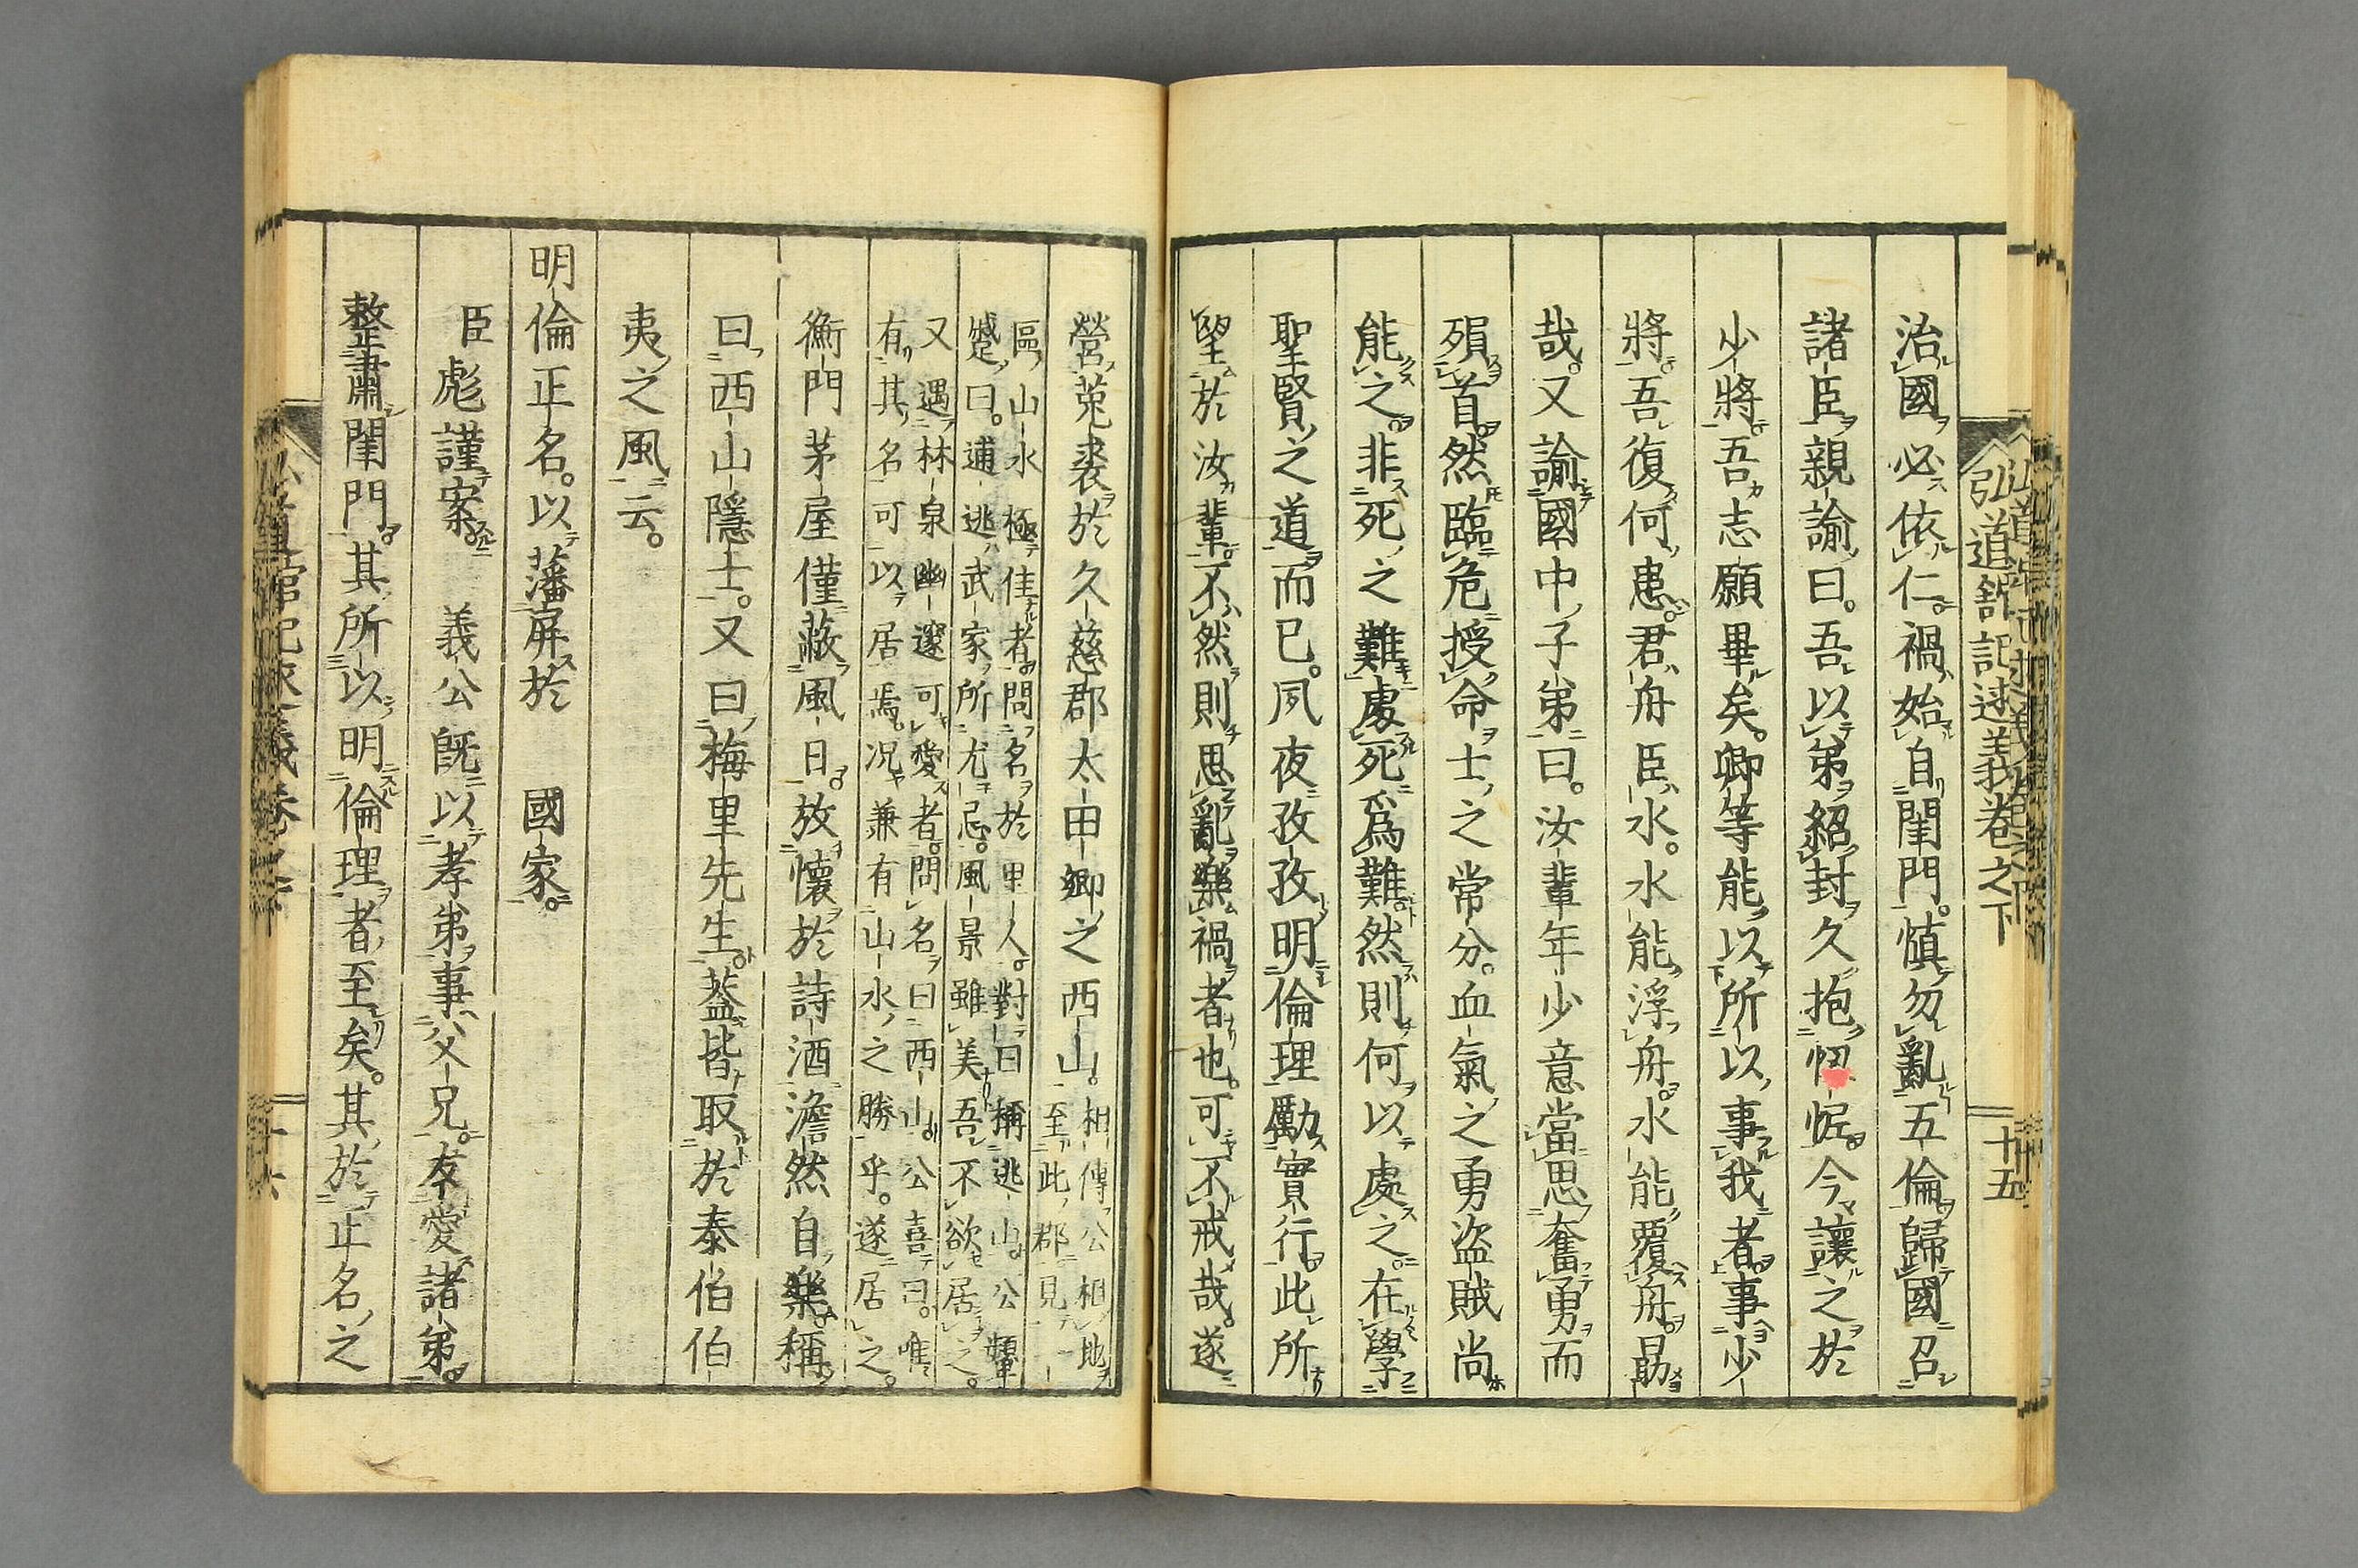 弘道館記述義卷之下
十五
治國必依仁禍始自閨門慎勿亂五倫歸國召
諸臣親諭曰。吾以弟紹封久抱忸怩今讓之於
少將吾志願畢矣。卿等能以所以事我者事少
將。吾復何患。君舟臣水。水能浮舟。水能覆舟勗
哉。又諭國中子弟曰。汝輩年少意當思奮勇而
殞首然臨危授命士之常分。血氣之勇盜賊尚
能之。非死之難處死爲難然則何以處之。在學
聖賢之道而已。夙夜孜孜明倫理勵實行。此所
望於汝輩不然則思亂樂禍者也。可不戒哉。遂
營菟裘於久慈郡太田鄉之西山。相傳公相地
至此郡見一
區山水極佳者問名於里人。對曰稱逃山。公顰
蹙曰。逋逃武家所尤忌。風景雖美吾不欲居之。
又遇林泉幽邃可愛者。問名曰西山。公喜曰。唯
有其名可以居焉。况兼有山水之勝乎。遂居之。
衡門茅屋僅蔽風日。放懷於詩酒澹然自樂稱
曰西山隱士。又曰梅里先生。蓋皆取於泰伯伯
夷之風云。
明倫正名。以藩屏於　國家。
臣彪謹案　義公既以孝弟事父兄。友愛諸弟。
整肅閨門。其所以明倫理者至矣。其於正名之